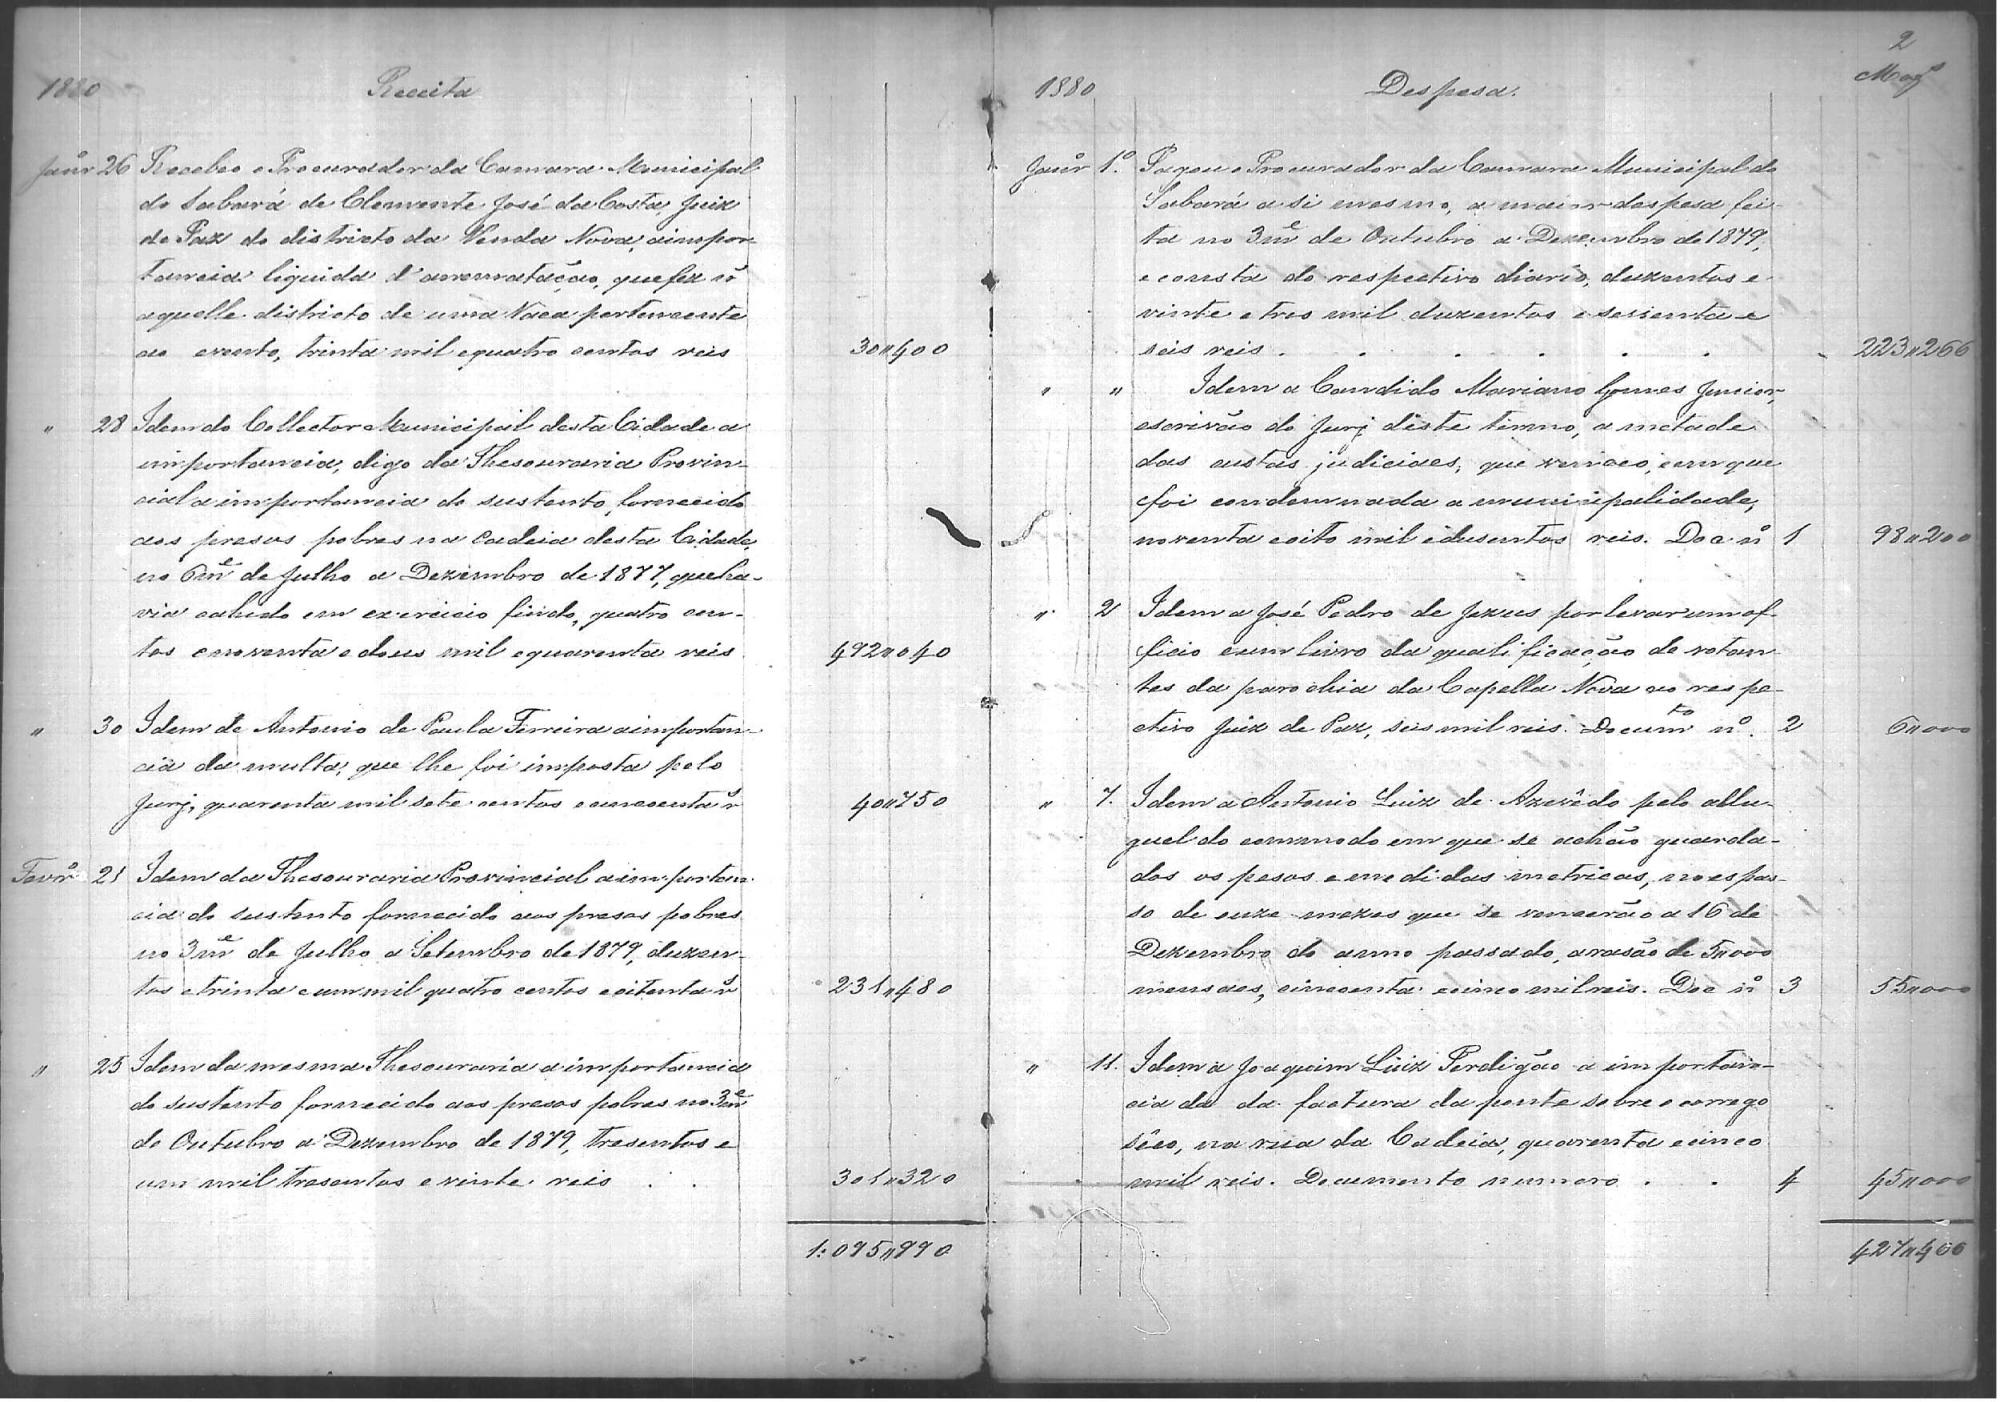 1880 Receita
Janr.o 26 Recebeo o Procurador da Camara Municipal
de Sabará de Clemente José da Costa, Juiz
de Paz do districto da Venda Nova, a impor-
tancia liquida d'arrematação, que fez n'
aquelle districto de uma Vaca pertencente
ao evento, trinta mil e quatro centos reis 30"400
" 28 Idem do Collector Municipal desta Cidade a
importancia, digo da Thesouraria Provin-
cial a importancia do sustento, fornecido
aos presos pobres na Cadeia desta Cidade,
no 6m.e de Julho a Dezembro de 1877, que ha-
via cahido em exercicio findo, quatro cen-
tos e noventa e dous mil e quarenta reis 492"040
" 30 Idem de Antonio de Paula Ferreira a importan-
cia da multa, que lhe foi imposta pelo
Jury, quarenta mil sete centos e cincoenta r.s 40"750
Fevr.o 21 Idem da Thesouraria Provincial a importan-
cia do sustento fornecido aos presos pobres
no 3m.e de Julho a Setembro de 1879, duzen-
tos e trinta e um mil quatro centos e oitenta r.s 231"480
" 25 Idem da mesma Thesouraria a importancia
do sustento fornecido aos presos pobres no 3m.e
de Outubro a Dezembro de 1879, tresentos e
um mil tresentos e vinte reis . . 301"320
1:095"990
2
1880 Despesa.
Janr.o 1.o Pagou o Procurador da Camara Municipal de
Sabará a si mesmo, a maior despesa fei-
ta no 3m.e de Outubro a Dezembro de 1879,
e consta do respectivo diario, duzentos e
vinte e tres mil duzentos e sessenta e
seis reis . . . . . . . 223"266
" " Idem a Candido Mariano Gomes Junior,
escrivão do Jury dêste termo, a metade
das custas judiciaes, que venceo, em que
foi condemnada a municipalidade,
noventa e oito mil e dusentos reis. Doc n.o 1 98"200
" 2 Idem a José Pedro de Jezus por levar um of-
ficio e um livro da qualificação de votan-
tes da parochia da Capella Nova ao respe-
ctivo Juiz de Paz, seis mil reis. Docum.to n.o 2 6"000
" 7. Idem a Antonio Luiz de Azevêdo pelo allu-
guel do commodo em que se achão guarda-
dos os pesos e medidas metricas, no espa-
so de onze mezes que se vencerão a 16 de
Dezembro do anno passado, a rasão de 5"000
mensaes, cincoenta e cinco mil reis. Doc n.o 3 55"000
" 11. Idem a Joaquim Luiz Perdigão a importan-
cia da da factura da ponte sobre o corrego
sêco, na rua da Cadeia, quarenta e cinco
mil reis. Documento numero . . 4 45"000
427"466